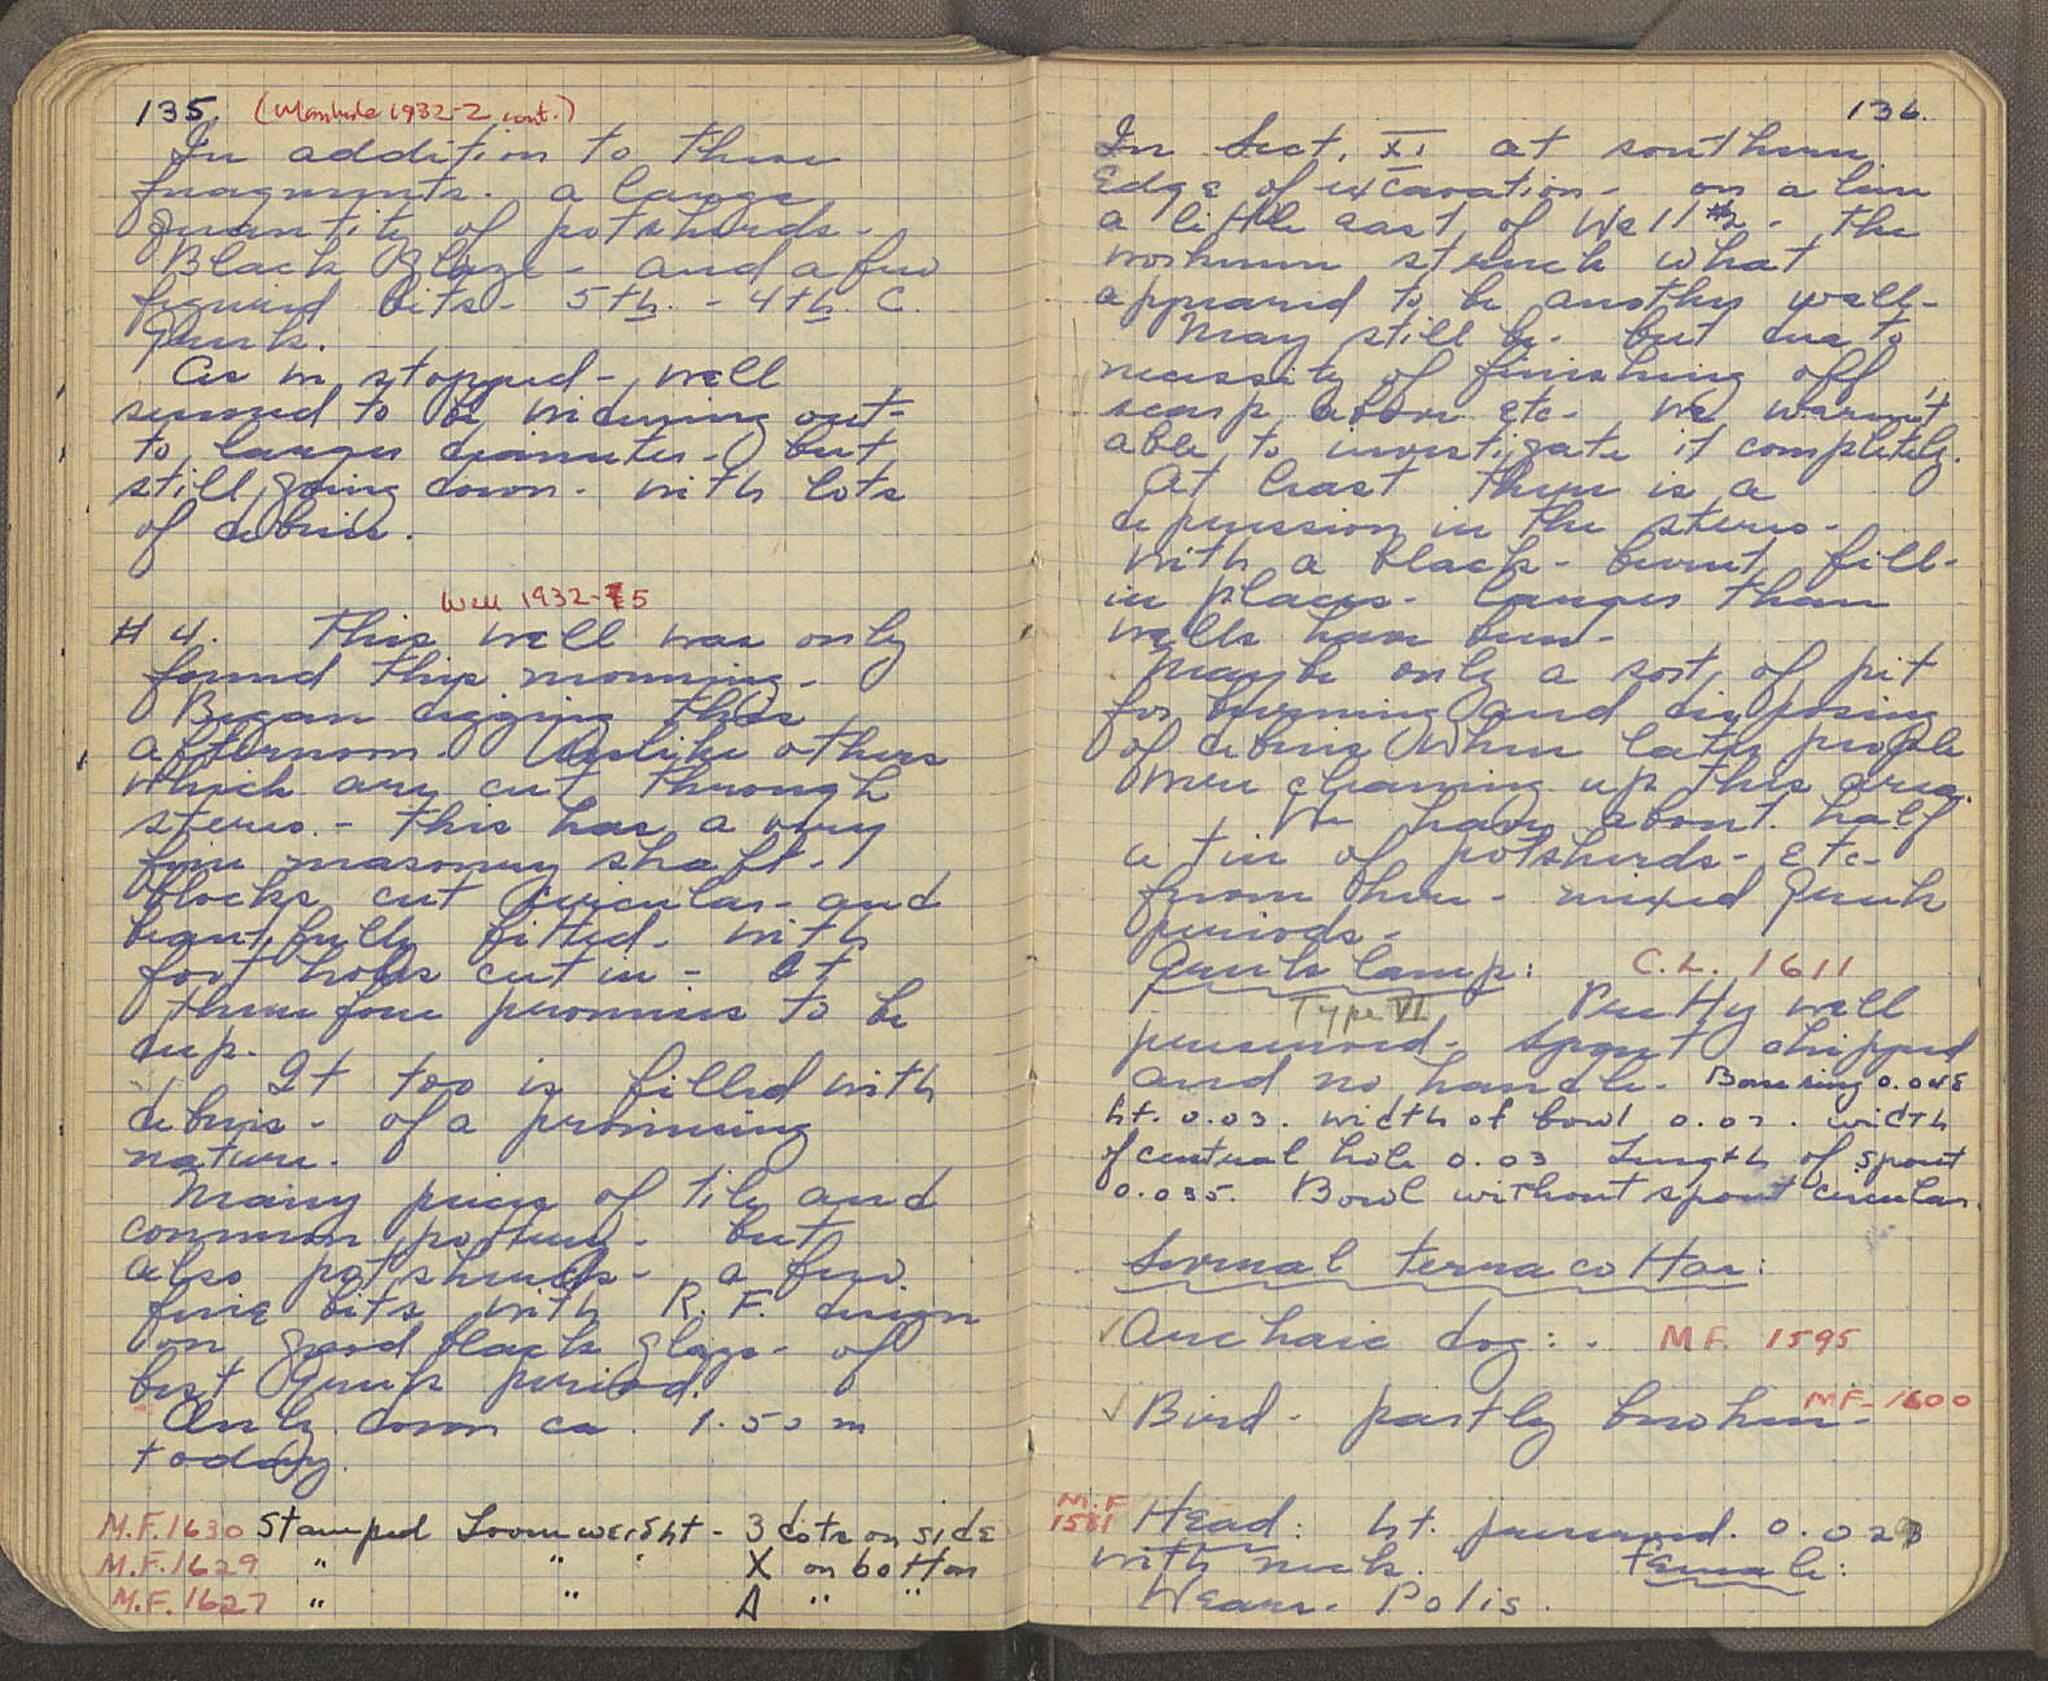 135. (Manhole 1932-2 cont.)
In addition to these
fragments - a large
quantity of potsherds -
Black Glaze - and a few
figured bits - 5th. - 4th. C.
Greek.
As we stopped -, well
seemed to be widening out -
to larger diameter - but
still going down - with lots
of debris.
Well 1932-5
#4. This well was only
found this morning.
Began digging this
afternoon. Unlike others
which are cut through
stereo. - this has a very
fine masonry shaft -
blocks cut circular - and
beautifully fitted - with
foot holes cut in - It
therefore promises to be
deep.
It too is filled with
debris - of a promising
nature.
Many pieces of tile and
common pottery - but
also potsherds - a few
fine bits with R. F. design
on good black glaze - of
best Greek period.
Only down ca. 1.50 m
today.
M.F. 1630 Stamped Loomweight - 3 dots on side
M.F. 1629 " " " X on bottom
M.F. 1627 " " A " "
136.
In Sect. XI at southern
Edge of excavation - on a line
a little east of Well #2 - the
workmen struck what
appeared to be another well -
May still be - but due to
necessity of finishing off
scarp above etc - we weren't
able to investigate it completely.
At least there is a
depression in the stereo -
with a black - burnt fill -
in places - larger than
wells have been -
Maybe only a sort of pit
for burning and disposing
of debris when later people
were cleaning up this area.
We have about half
a tin of potsherds - etc -
from here - mixed Greek
periods -
Greek lamp: C.L. 1611
Type VI Pretty well
preserved - spout chipped
and no handle. Base ring 0.048
ht. 0.03. width of bowl 0.07. width
of central hole 0.03 Length of spout
0.035. Bowl without spout circular.
Several terracottas:
✓ Archaic dog: - M.F. 1595
✓ Bird - partly broken - M.F. 1600
M.F. 1581 Head: ht. preserved. 0.023
with neck. Female:
Wears - Polis.